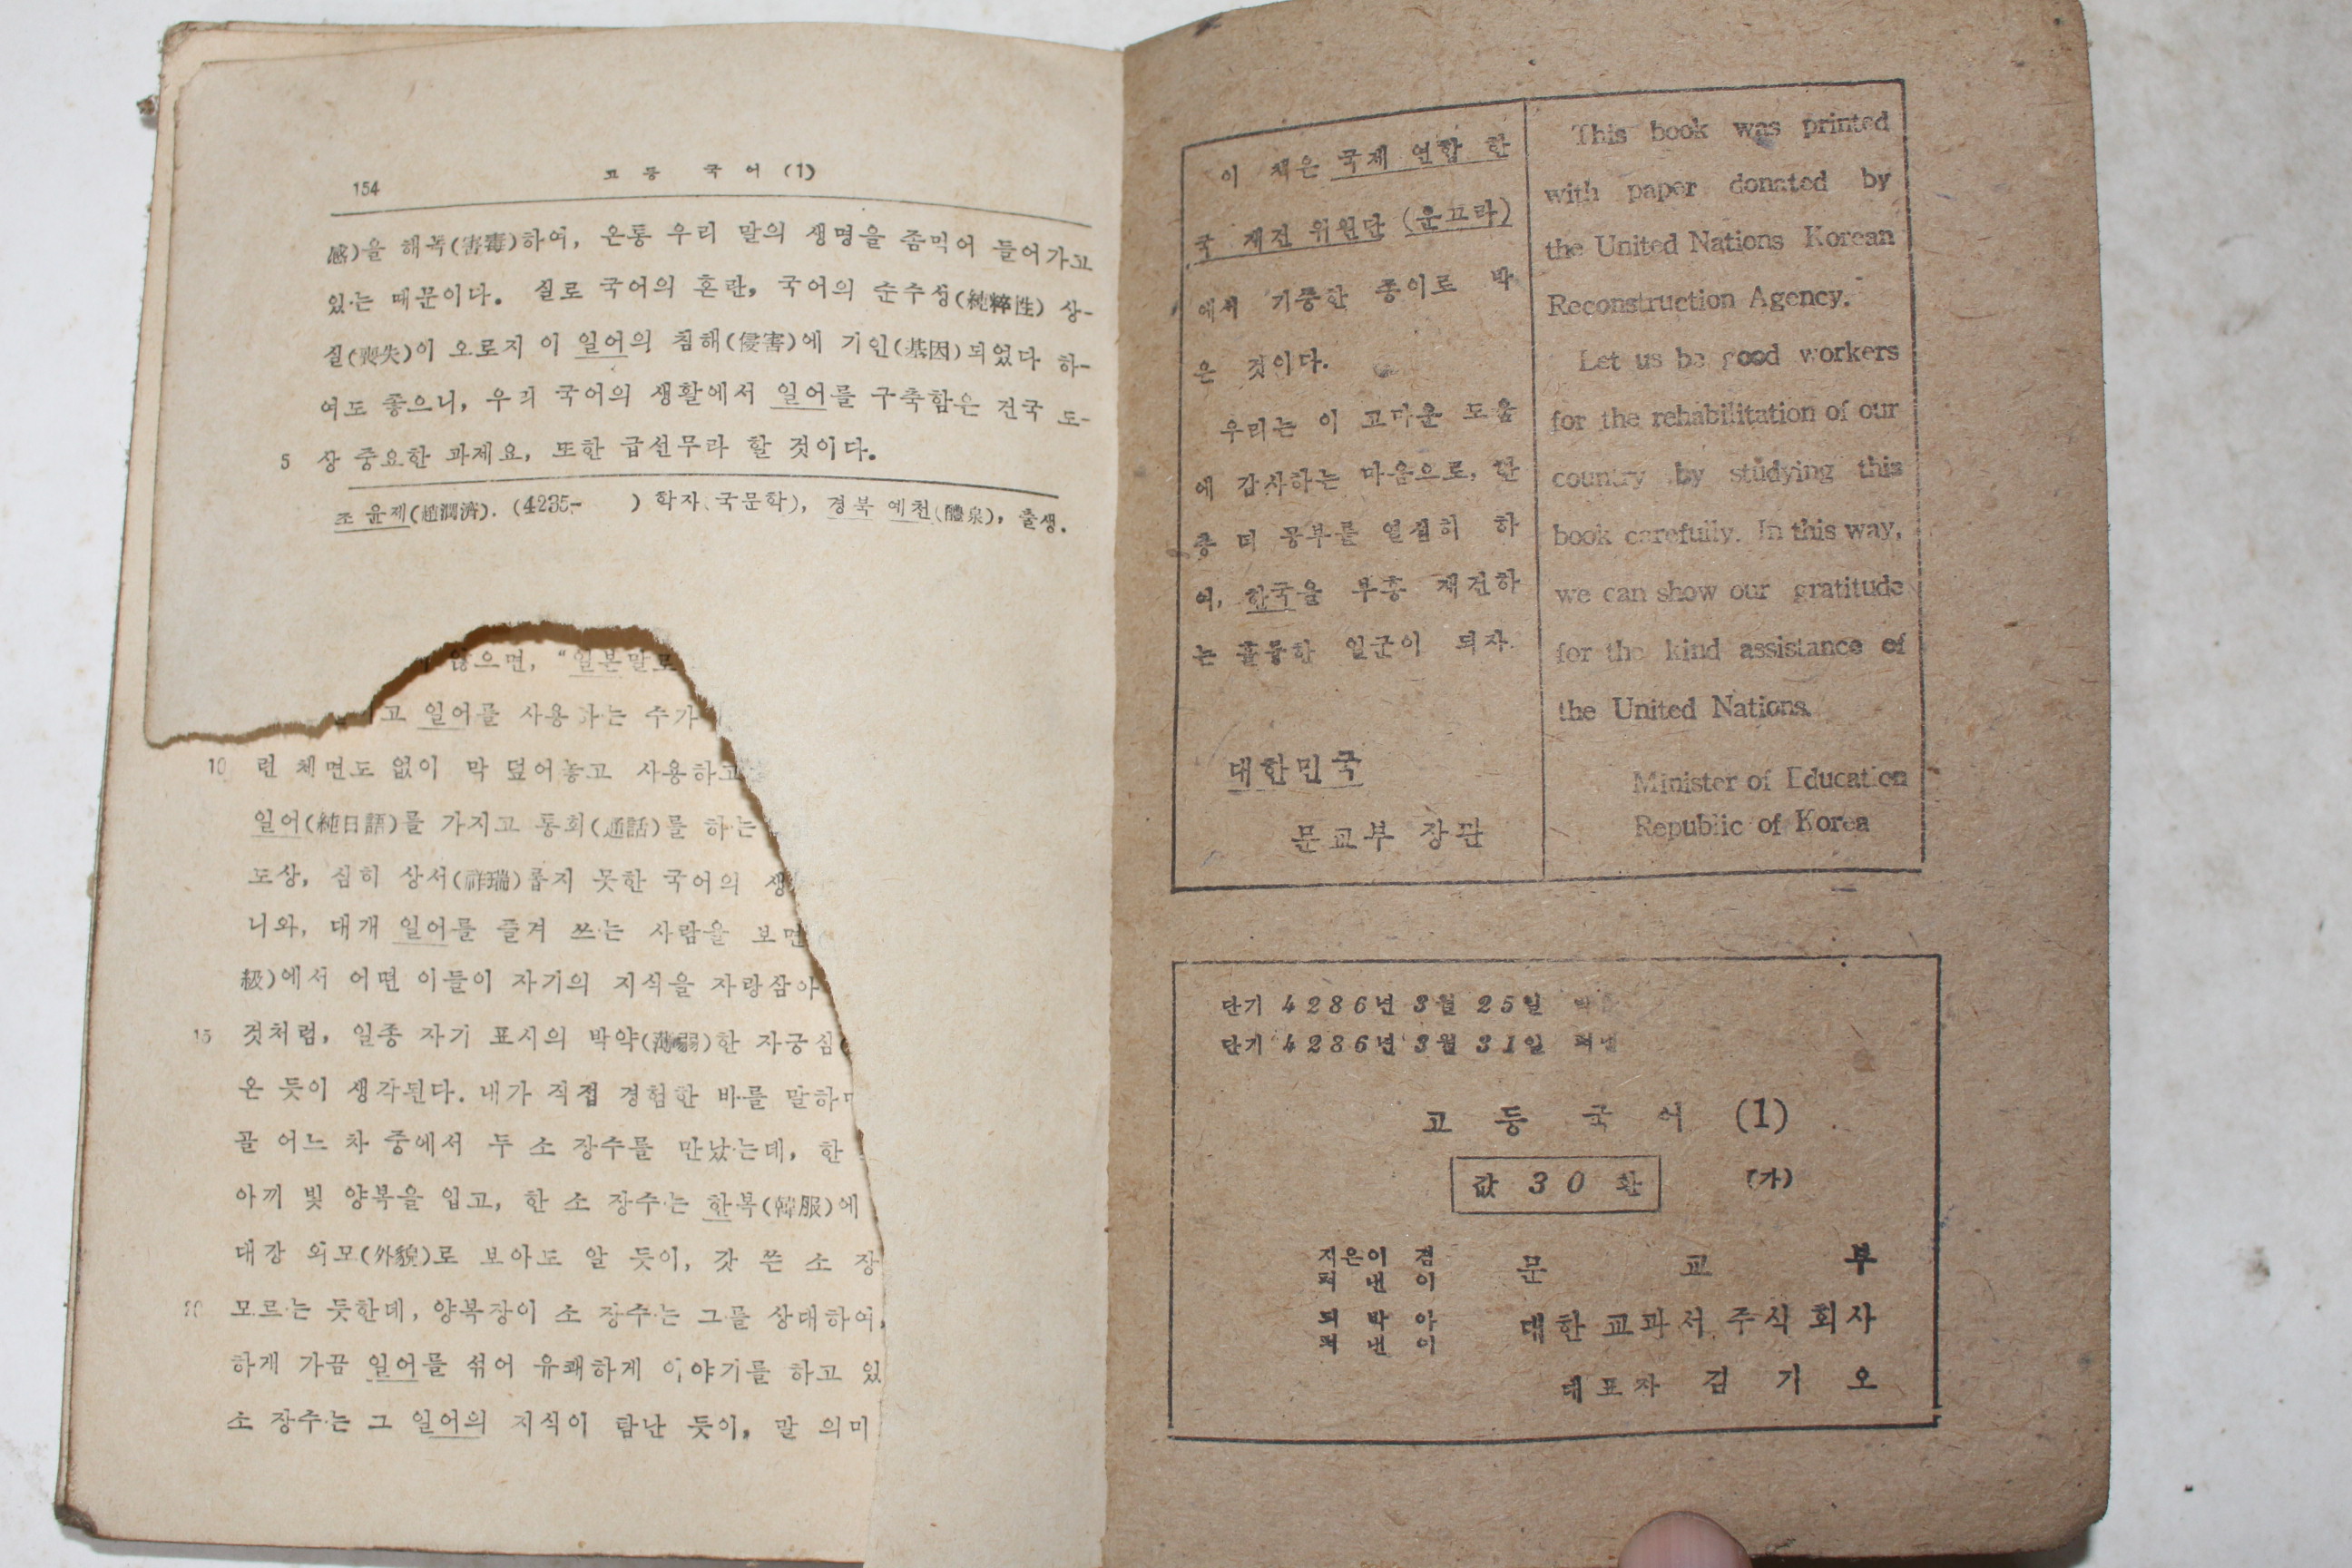 154
고등 국어 (1)
感)을 해독(害毒)하여, 온통 우리 말의 생명을 좀먹어 들어가고
있는 때문이다. 실로 국어의 혼란, 국어의 순수성(純粹性) 상-
실(喪失)이 오로지 이 일어의 침해(侵害)에 기인(基因)되었다 하-
여도 좋으니, 우리 국어의 생활에서 일어를 구축함은 건국 도-
5 상 중요한 과제요, 또한 급선무라 할 것이다.
조 윤제(趙潤濟). (4235- ) 학자(국문학), 경북 예천(醴泉), 출생.
않으면, "일본말로
고 일어를 사용하는 수가
10 런 체면도 없이 막 덮어놓고 사용하고
일어(純日語)를 가지고 통화(通話)를 하는
도상, 심히 상서(祥瑞)롭지 못한 국어의 생
니와, 대개 일어를 즐겨 쓰는 사람을 보면
級)에서 어떤 이들이 자기의 지식을 자랑삼아
15 것처럼, 일종 자기 표시의 박약(薄弱)한 자긍심
온 듯이 생각된다. 내가 직접 경험한 바를 말하
골 어느 차 중에서 두 소 장수를 만났는데, 한
아끼 빛 양복을 입고, 한 소 장수는 한복(韓服)에
대강 외모(外貌)로 보아도 알 듯이, 갓 쓴 소 장
20 모르는 듯한데, 양복장이 소 장수는 그를 상대하여,
하게 가끔 일어를 섞어 유쾌하게 이야기를 하고 있
소 장수는 그 일어의 지식이 탐난 듯이, 말 의미
이 책은 국제 연합 한
국 재건 위원단 (운끄라)
에서 기증한 종이로 박
은 것이다.
우리는 이 고마운 도움
에 감사하는 마음으로, 한
층 더 공부를 열심히 하
여, 한국을 부흥 재건하
는 훌륭한 일군이 되자.
대한민국
문교부 장관
This book was printed
with paper donated by
the United Nations Korean
Reconstruction Agency.
Let us be good workers
for the rehabilitation of our
country by studying this
book carefully. In this way,
we can show our gratitude
for the kind assistance of
the United Nations.
Minister of Education
Republic of Korea
단기 4286년 3월 25일 박음
단기 4286년 3월 31일 펴냄
고 등 국 어 (1)
값 30 환 (가)
지은이 겸
펴 낸 이 문 교 부
되 박 아
펴 낸 이 대한 교과서 주식 회사
대표자 김 기 오